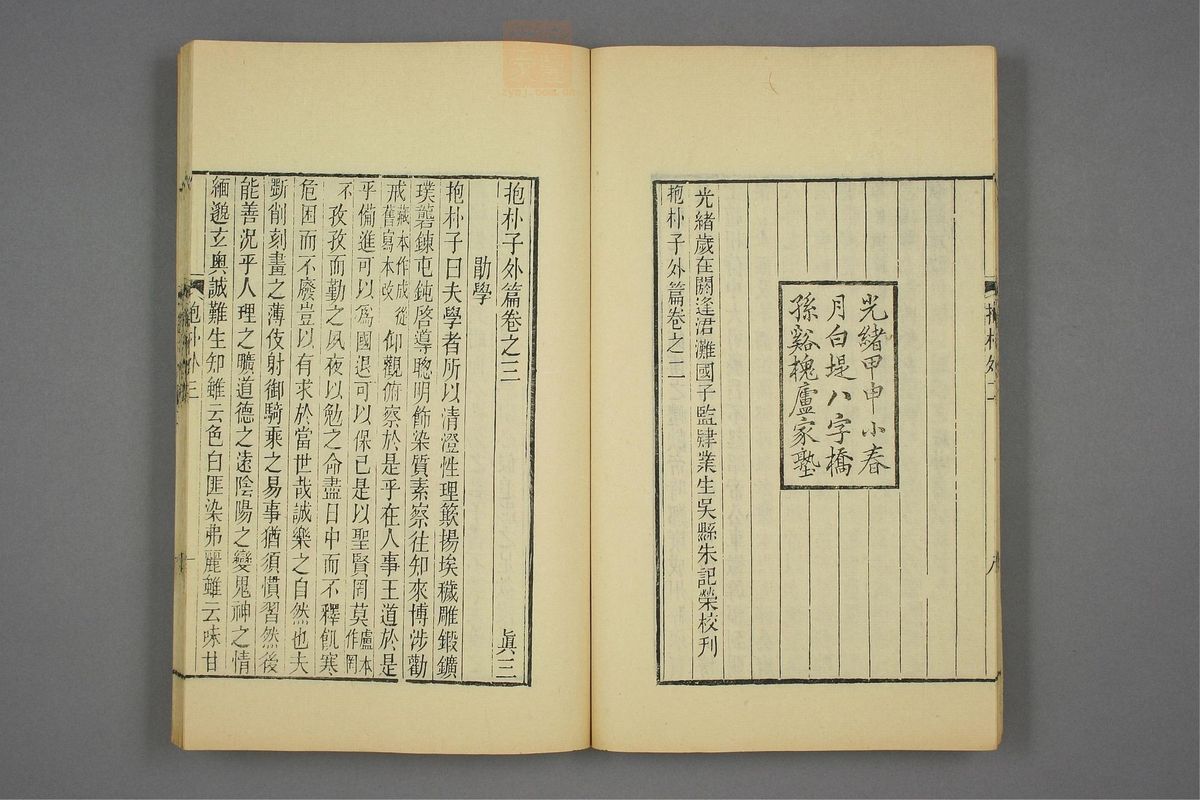 抱朴外二
八
光緒甲申小春
月白堤八字橋
孫谿槐廬家塾
光緒歲在閼逢涒灘國子監肄業生吳縣朱記榮校刊
抱朴子外篇卷之二
抱朴子外篇卷之三
眞三
勖學
抱朴子曰夫學者所以清澄性理簸揚埃穢雕鍛鑛
璞礱鍊屯鈍啓導聰明飾染質素察往知來博涉勸
戒藏本作成從舊寫本改仰觀俯察於是乎在人事王道於是
乎備進可以爲國退可以保己是以聖賢罔莫盧本作罔
不孜孜而勤之夙夜以勉之命盡日中而不釋飢寒
危困而不廢豈以有求於當世哉誠樂之自然也夫
斲削刻畫之薄伎射御騎乘之易事猶須慣習然後
能善況乎人理之曠道德之遠陰陽之變鬼神之情
緬邈玄奧誠難生知雖云色白匪染弗麗雖云味甘
抱朴外三
一